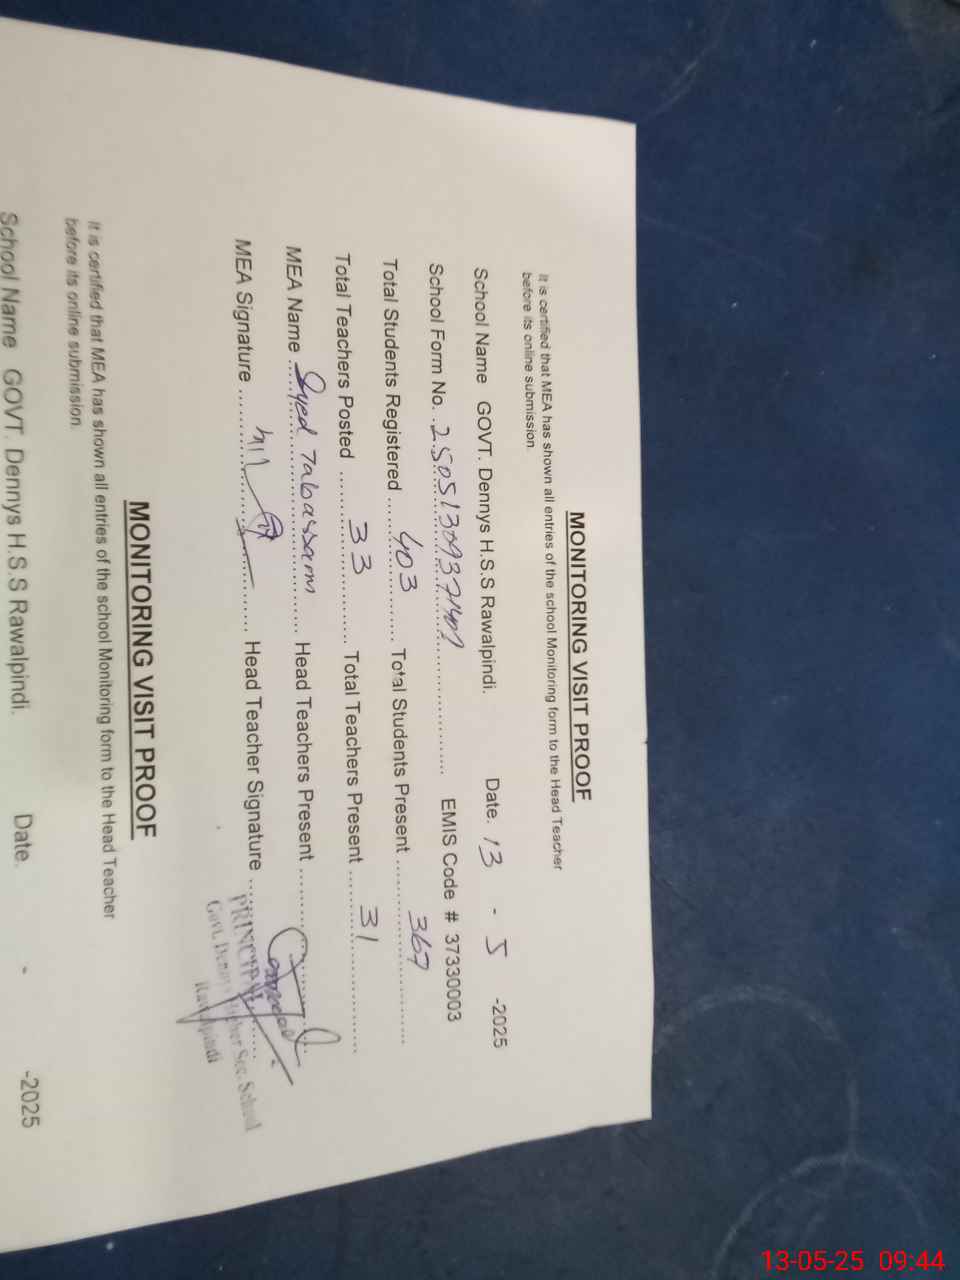 MONITORING VISIT PROOF
It is certified that MEA has shown all entries of the school Monitoring form to the Head Teacher
before its online submission.
School Name GOVT. Dennys H.S.S Rawalpindi. Date. 13 - 5 -2025
School Form No. EMIS Code # 37330003
Total Students Registered 403 Total Students Present 367
Total Teachers Posted 33 Total Teachers Present 31
MEA Name Syed Tabassam Head Teachers Present
MEA Signature Head Teacher Signature
PRINCIPAL
Govt. Dennys Higher Sec. School
Rawalpindi
MONITORING VISIT PROOF
It is certified that MEA has shown all entries of the school Monitoring form to the Head Teacher
before its online submission.
School Name GOVT. Dennys H.S.S Rawalpindi. Date. - -2025
13-05-25 09:44